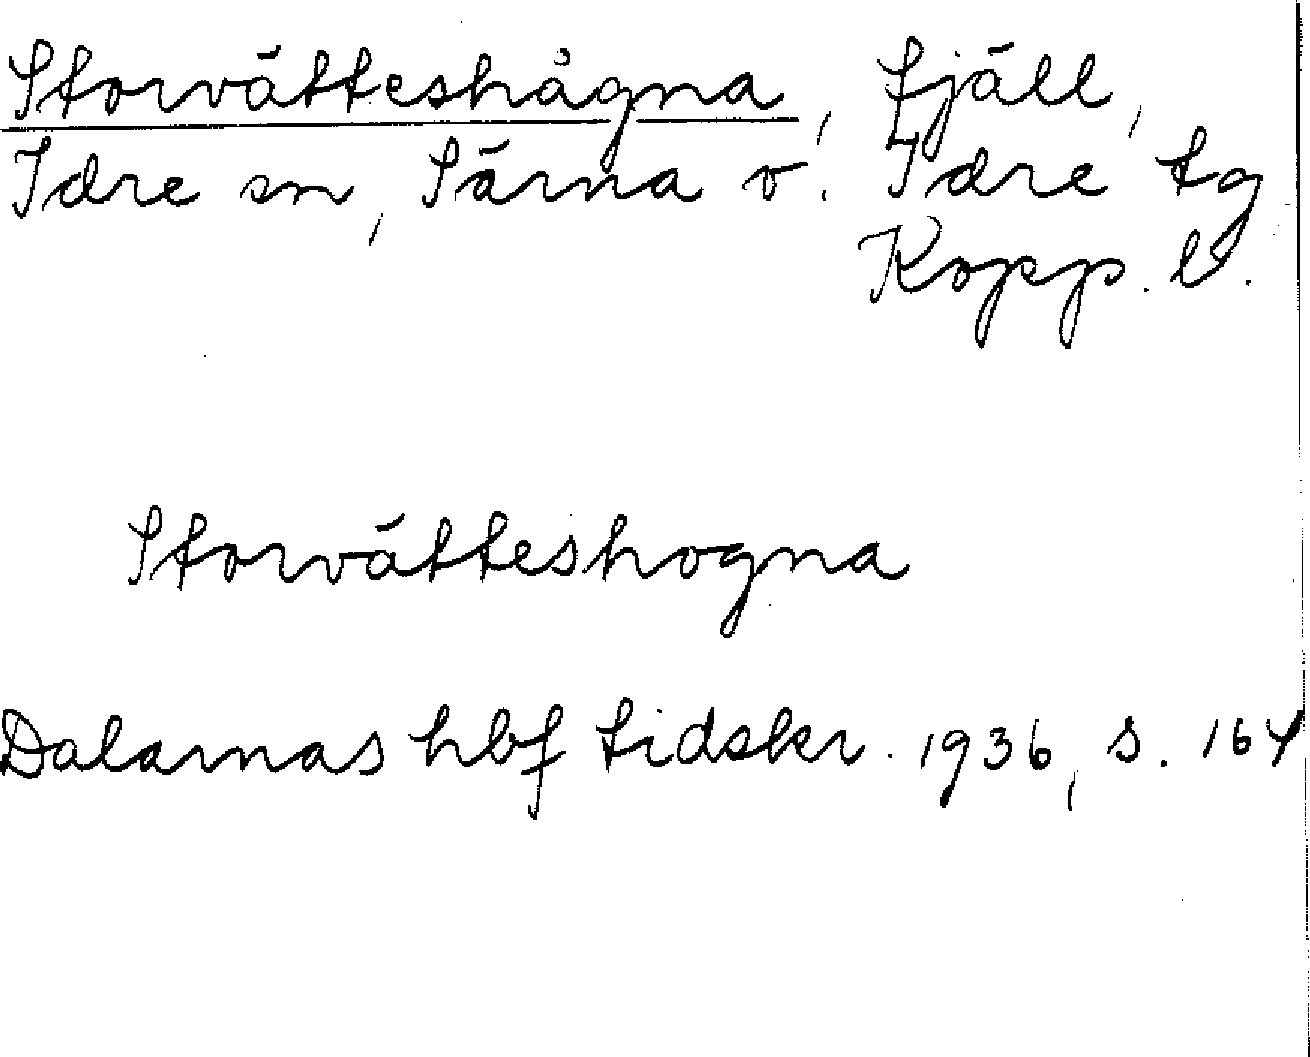 Storvätteshågna, fjäll,
Idre sn, Särna o. Idre tg
Kopp. l.
Storvätteshogna
Dalarnas hbf tidskr. 1936, s. 164